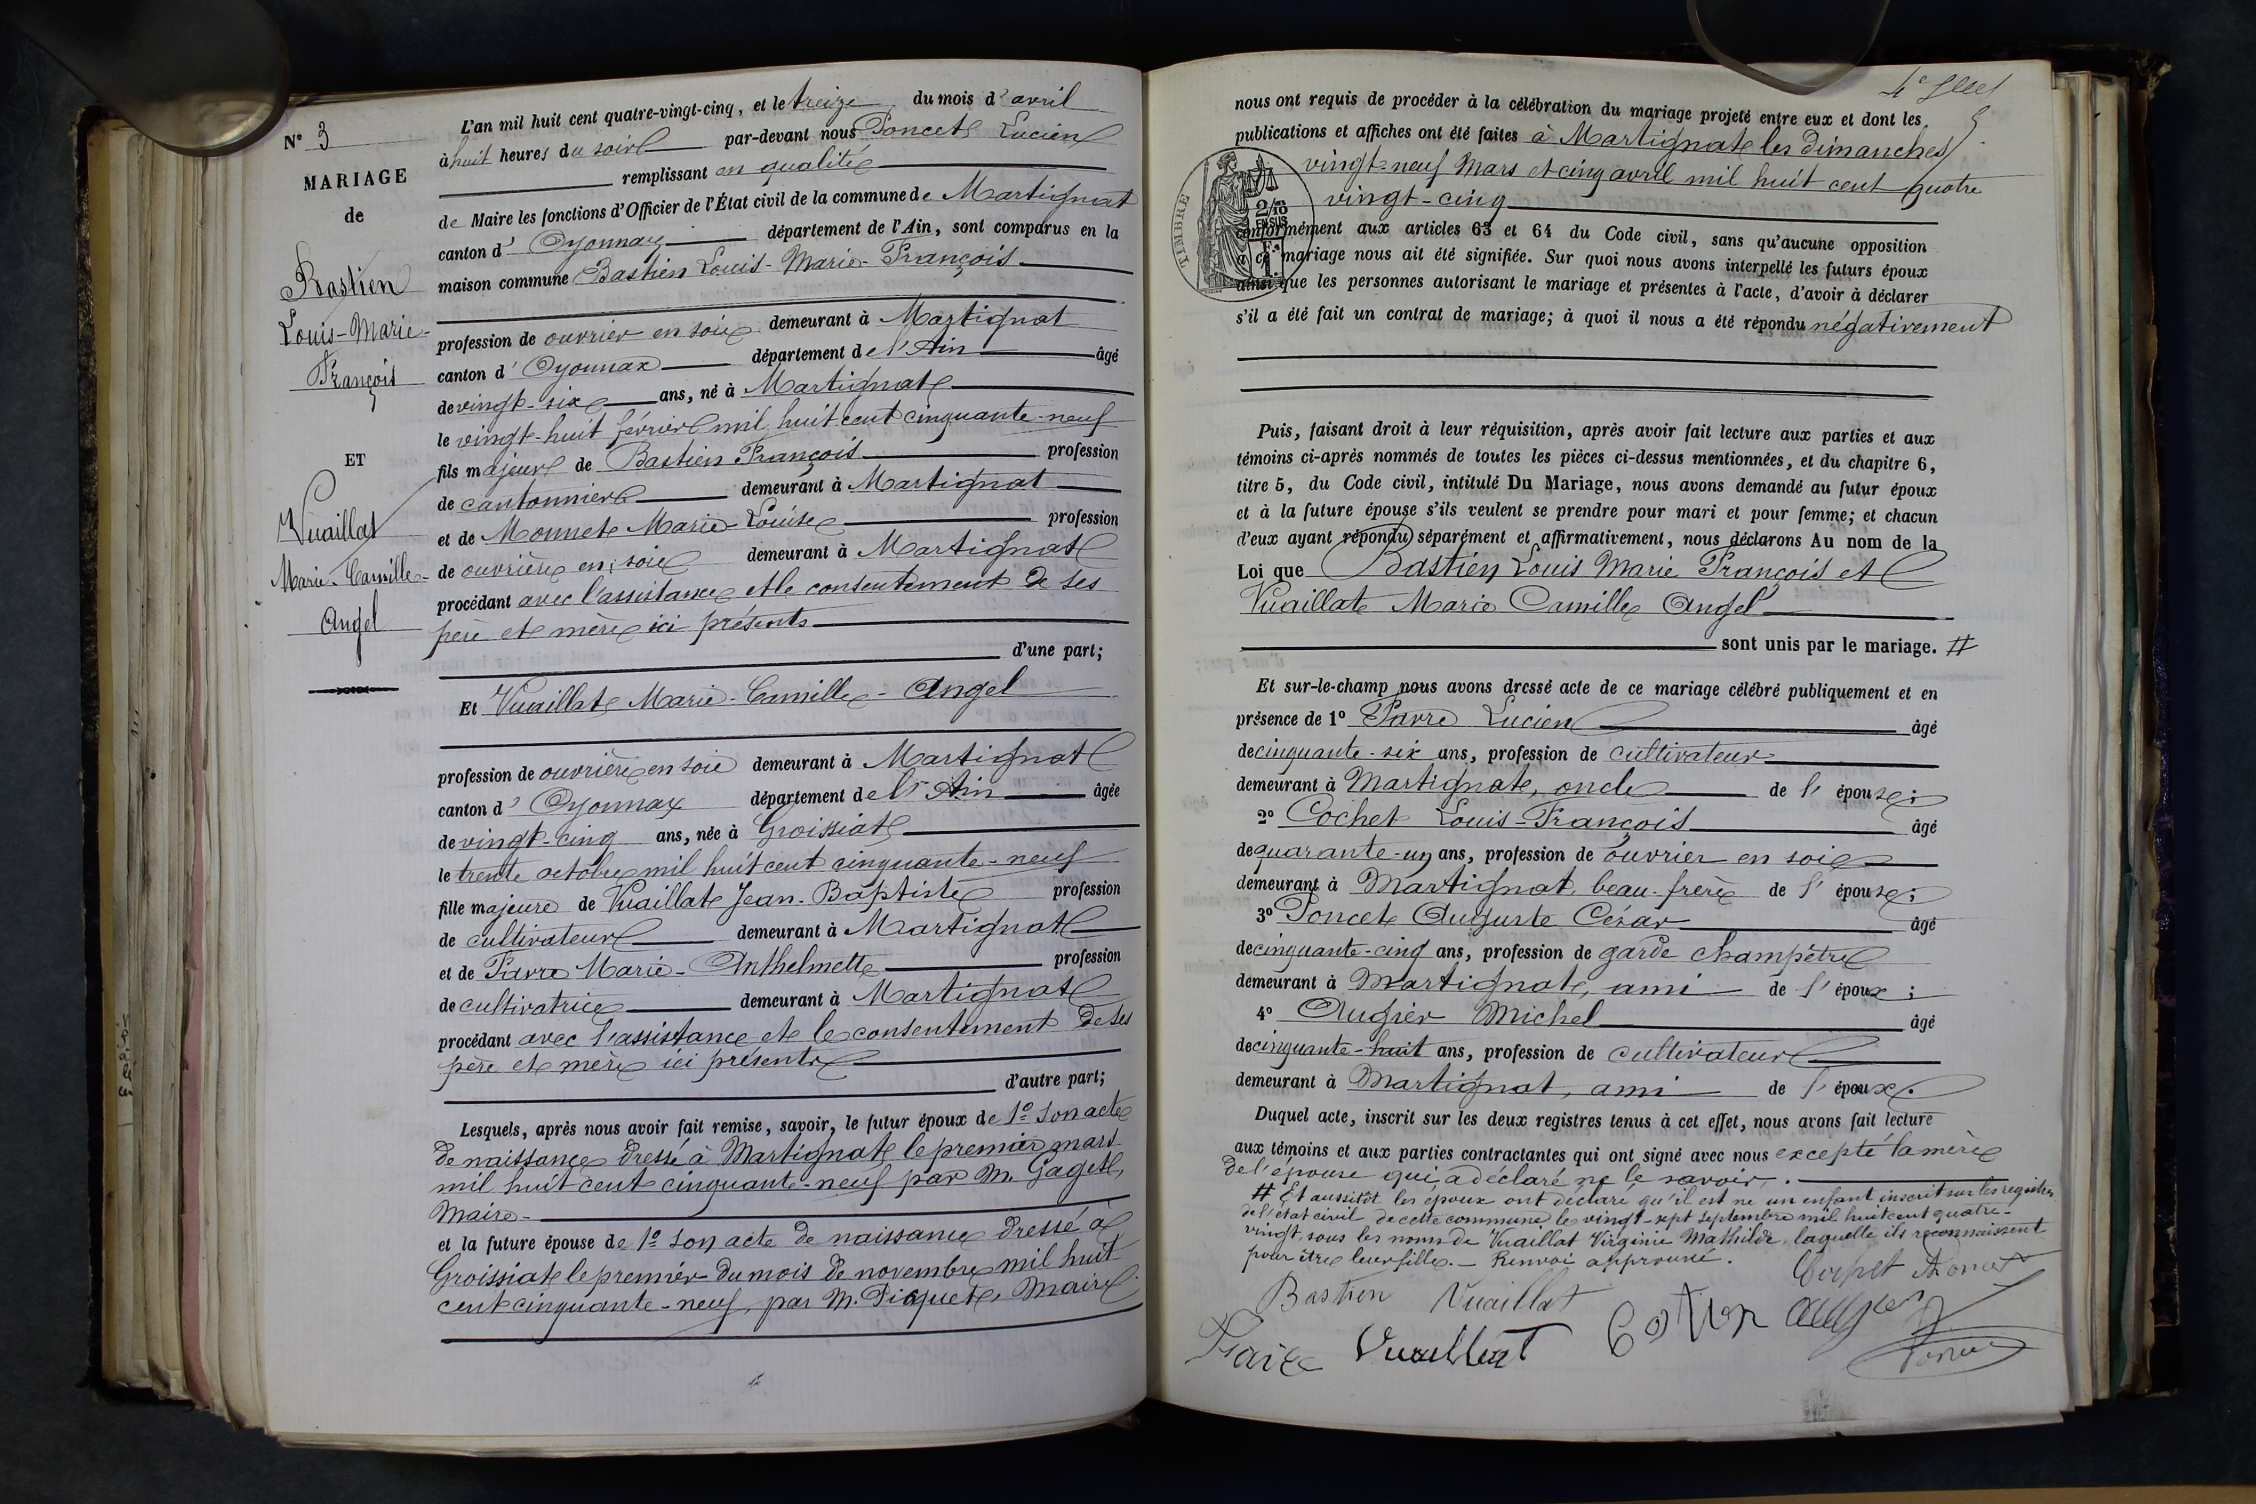 N° 3
MARIAGE
de
Bastien
Louis-Marie-
François
ET
Vuaillat
Marie-Camille-
Angel
L'an mil huit cent quatre-vingt-cinq, et le treize du mois d'avril
à huit heures du soir par-devant nous Poncet Lucien
remplissant en qualité
de Maire les fonctions d'Officier de l'État civil de la commune de Martignat
canton d'Oyonnax département de l'Ain, sont comparus en la
maison commune Bastien Louis-Marie-François
profession de ouvrier en soie demeurant à Martignat
canton d'Oyonnax département de l'Ain âgé
de vingt-six ans, né à Martignat
le vingt-huit février mil huit cent cinquante-neuf
fils majeur de Bastien François profession
de cantonnier demeurant à Martignat
et de Monnet Marie-Louise profession
de ouvrière en soie demeurant à Martignat
procédant avec l'assistance et le consentement de ses
père et mère ici présents
d'une part;
Et Vuaillat Marie-Camille-Angel
profession de ouvrière en soie demeurant à Martignat
canton d'Oyonnax département de l'Ain âgée
de vingt-cinq ans, née à Groissiat
le trente octobre mil huit cent cinquante-neuf
fille majeure de Vuaillat Jean-Baptiste profession
de cultivateur demeurant à Martignat
et de Favre Marie-Anthelmette profession
de cultivatrice demeurant à Martignat
procédant avec l'assistance et le consentement de ses
père et mère ici présents
d'autre part;
Lesquels, après nous avoir fait remise, savoir, le futur époux de 1° son acte
de naissance dressé à Martignat le premier mars
mil huit cent cinquante-neuf par M. Gaget,
Maire-
et la future épouse de 1° son acte de naissance dressé à
Groissiat le premier du mois de novembre mil huit
cent cinquante-neuf, par M. Piquet, Maire
nous ont requis de procéder à la célébration du mariage projeté entre eux et dont les
publications et affiches ont été faites à Martignat les dimanches
vingt-neuf Mars et cinq avril mil huit cent quatre
vingt-cinq
TIMBRE
2/10
EN SUS
conformément aux articles 63 et 64 du Code civil, sans qu'aucune opposition
à ce mariage nous ait été signifiée. Sur quoi nous avons interpellé les futurs époux
ainsi que les personnes autorisant le mariage et présentes à l'acte, d'avoir à déclarer
s'il a été fait un contrat de mariage; à quoi il nous a été répondu négativement
Puis, faisant droit à leur réquisition, après avoir fait lecture aux parties et aux
témoins ci-après nommés de toutes les pièces ci-dessus mentionnées, et du chapitre 6,
titre 5, du Code civil, intitulé Du Mariage, nous avons demandé au futur époux
et à la future épouse s'ils veulent se prendre pour mari et pour femme; et chacun
d'eux ayant répondu séparément et affirmativement, nous déclarons Au nom de la
Loi que Bastien Louis Marie François et
Vuaillat Marie Camille Angel
sont unis par le mariage. #
Et sur-le-champ nous avons dressé acte de ce mariage célébré publiquement et en
présence de 1° Favre Lucien âgé
de cinquante-six ans, profession de cultivateur
demeurant à Martignat, oncle de l'épouse;
2° Cochet Louis-François âgé
de quarante-un ans, profession de ouvrier en soie
demeurant à Martignat, beau-frère de l'épouse;
3° Poncet Auguste Cézar âgé
de cinquante-cinq ans, profession de garde champêtre
demeurant à Martignat, ami de l'époux;
4° Augier Michel âgé
de cinquante-huit ans, profession de cultivateur
demeurant à Martignat, ami de l'époux.
Duquel acte, inscrit sur les deux registres tenus à cet effet, nous avons fait lecture
aux témoins et aux parties contractantes qui ont signé avec nous excepté la mère
de l'épouse qui a déclaré ne le savoir.
# Et aussitôt les époux ont déclaré qu'il est né un enfant inscrit sur les registres
de l'état civil de cette commune le vingt-sept septembre mil huit cent quatre-
vingt, sous les noms de Vuaillat Virginie Mathilde, laquelle ils reconnaissent
pour être leur fille. - Renvoi approuvé.
Bastien Vuaillat
Vuaillat